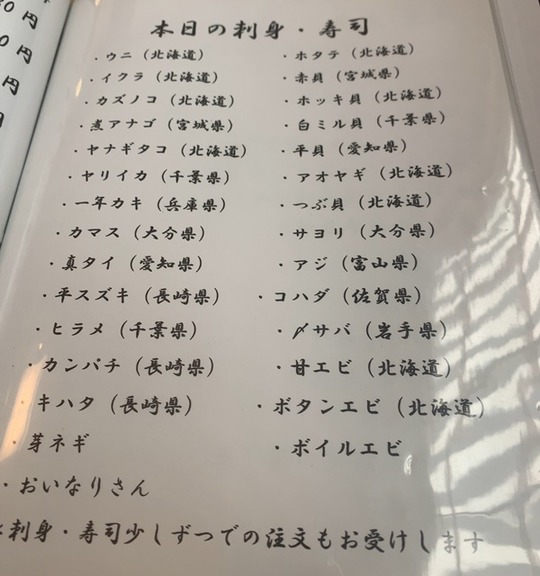 円
円
円
円
本日の刺身・寿司
・ウニ（北海道）
・イクラ（北海道）
・カズノコ（北海道）
・煮アナゴ（宮城県）
・ヤナギタコ（北海道）
・ヤリイカ（千葉県）
・一年カキ（兵庫県）
・カマス（大分県）
・真タイ（愛知県）
・平スズキ（長崎県）
・ヒラメ（千葉県）
・カンパチ（長崎県）
・キハタ（長崎県）
・芽ネギ
・おいなりさん
・ホタテ（北海道）
・赤貝（宮城県）
・ホッキ貝（北海道）
・白ミル貝（千葉県）
・平貝（愛知県）
・アオヤギ（北海道）
・つぶ貝（北海道）
・サヨリ（大分県）
・アジ（富山県）
・コハダ（佐賀県）
・〆サバ（岩手県）
・甘エビ（北海道）
・ボタンエビ（北海道）
・ボイルエビ
刺身・寿司少しずつでの注文もお受けします